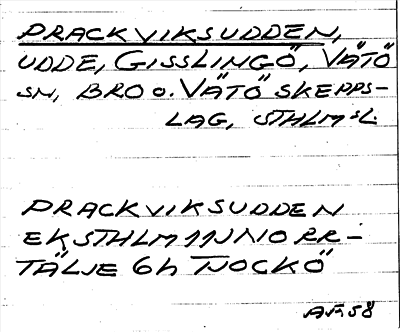 PRACKVIKSUDDEN,
UDDE, GISSLINGÖ, VÄTÖ
SN, BRO o. VÄTÖ SKEPPS-
LAG, STHLM:s L.
PRACKVIKSUDDEN
EK STHLM 11J N1O RR-
TÄLJE 6h TJOCKÖ
AF 58